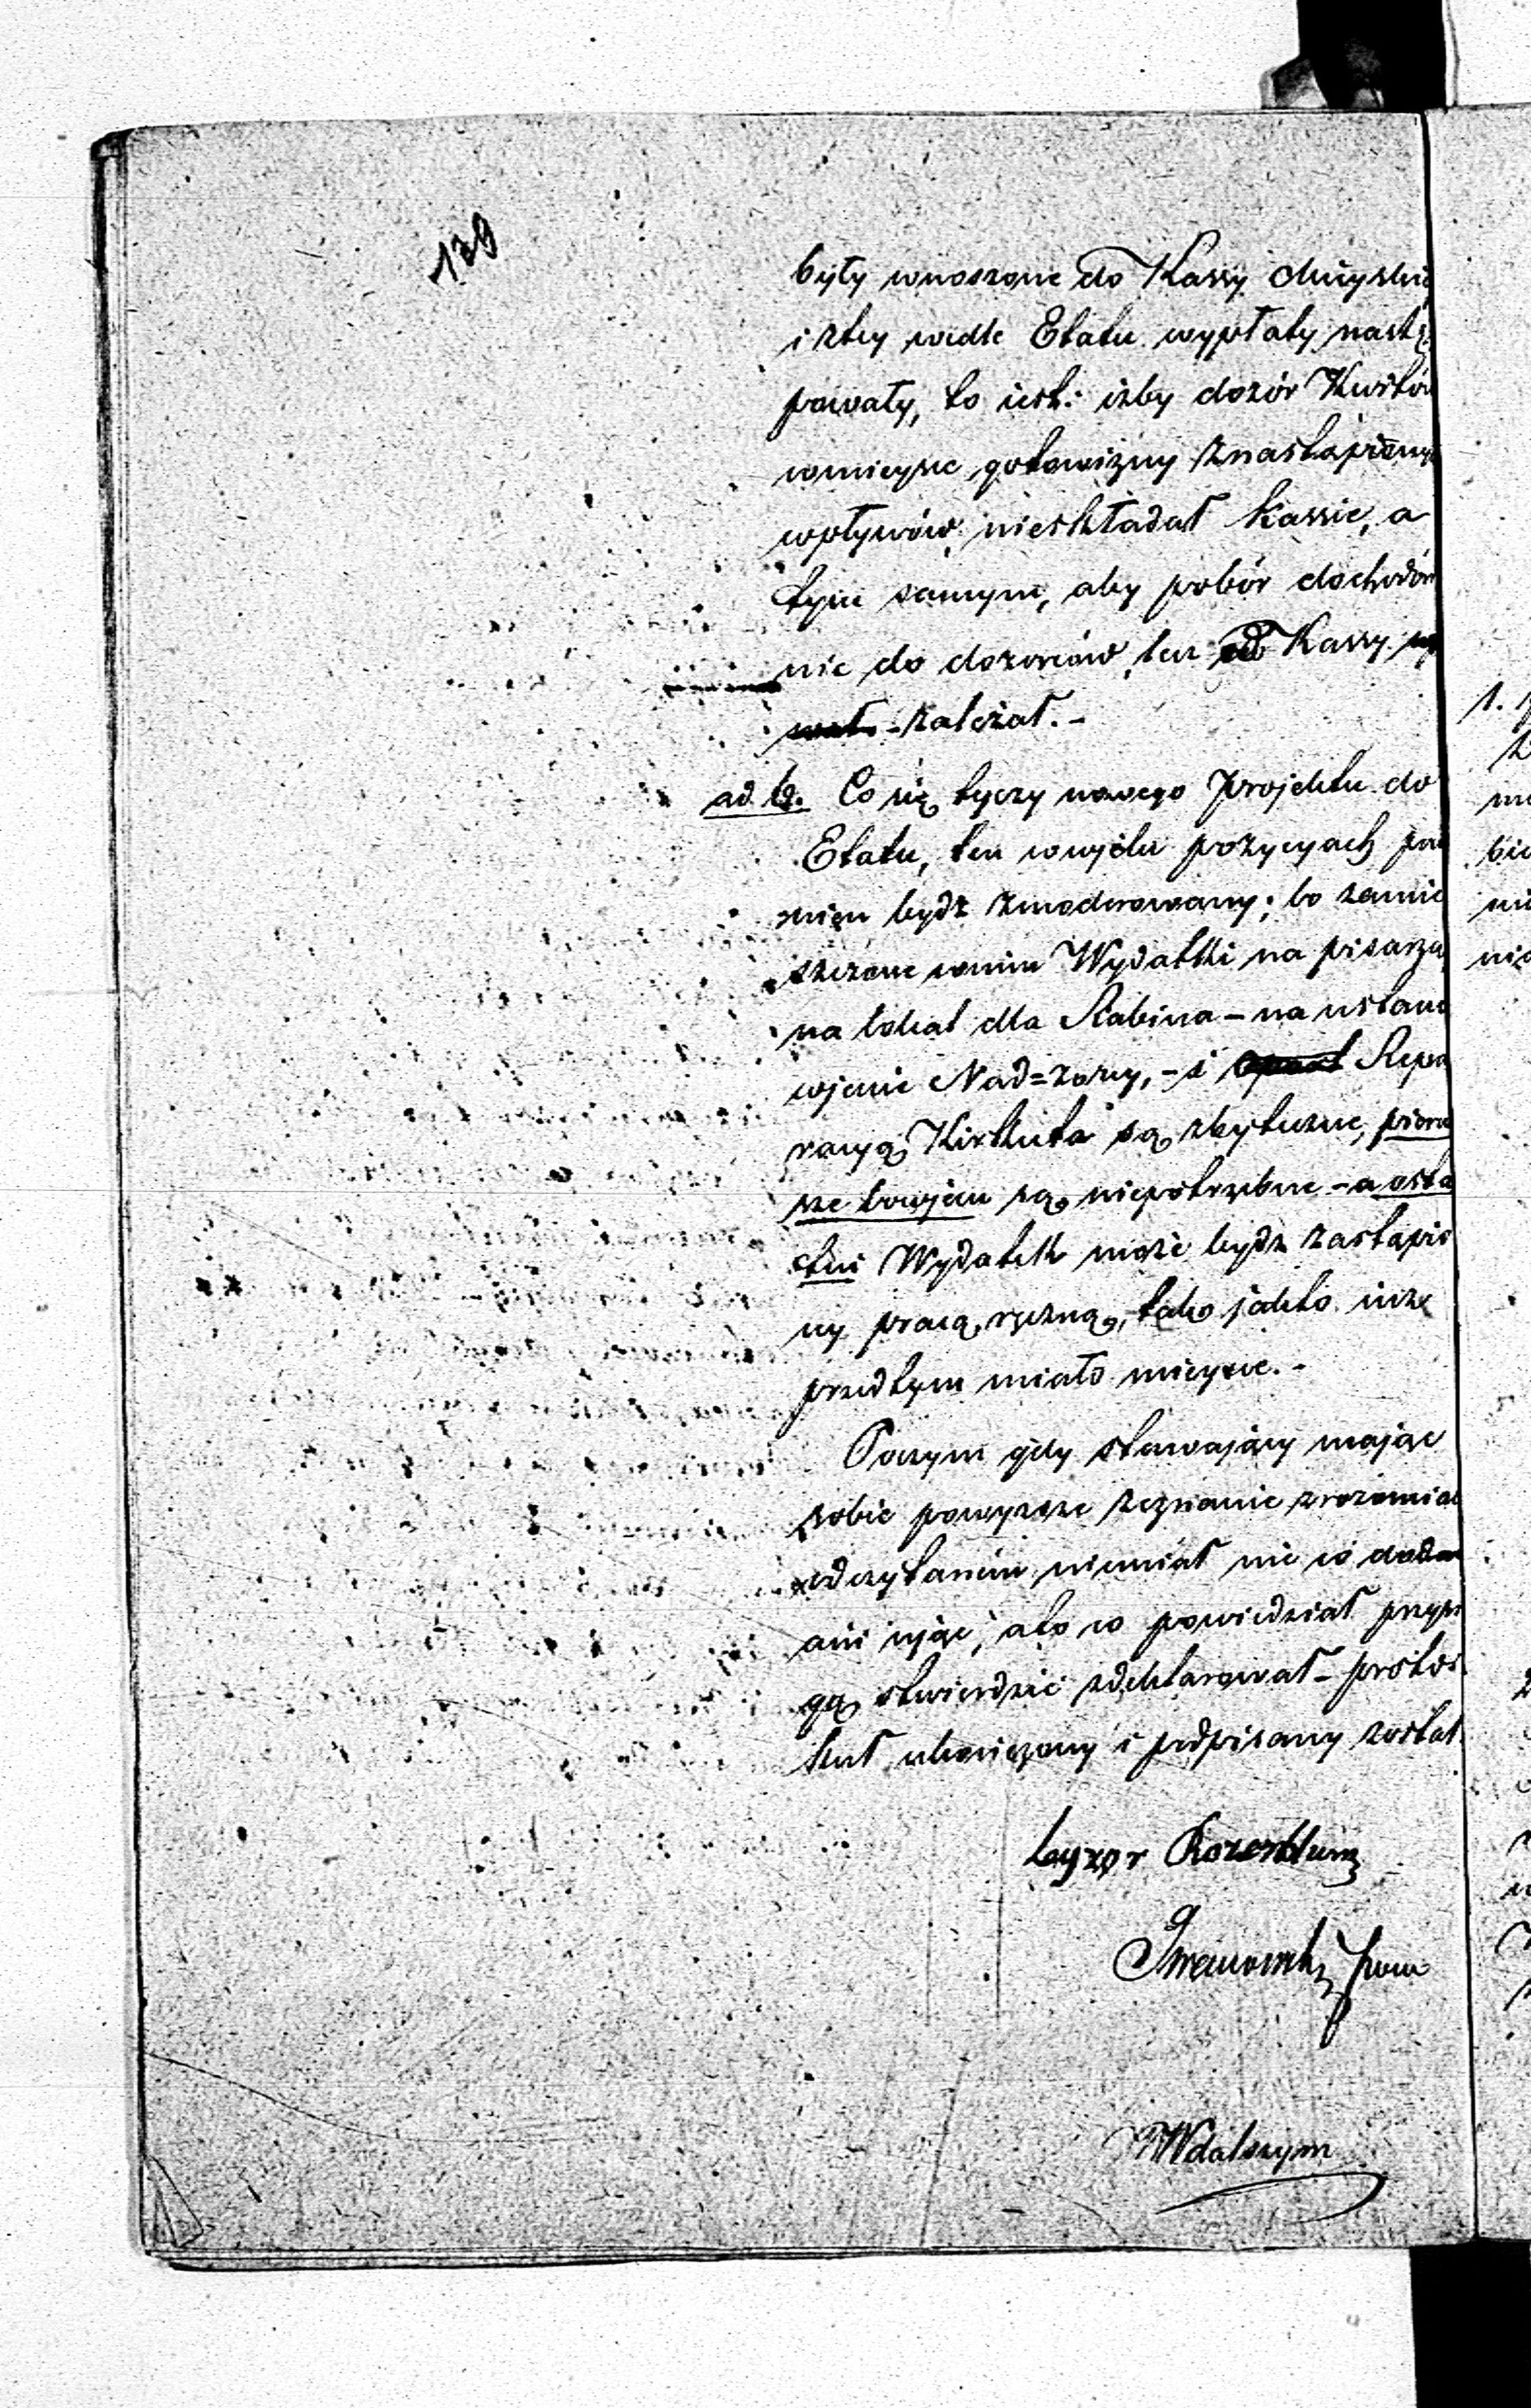 139
były wnoszone do Kassy Mieyski
i ztey wedle Etatu wypłaty nastę
powały, to iest: iżby dozór Kwitów
wmieysce gotowizny znastąpionych
wpływów, nieskładał kassie, a
tym samym, aby pobór dochodów
nie do dozorców, lecz od Kassy
zależał.-
ad b. Co się tyczy nowego Projektu do
Etatu, ten wwielu pozycyach powi
nien bydź zmoderowany; bo zamie
szczone wnim Wydatki na pisarza,
na lokal dla Rabina - na ustano
wienie Nad=zorcy, - i Repa
racyą Kirkuta są zbyteczne, pierw
sze bowiem są niepotrzebne - a osta
tni Wydatek może bydź zastąpio
ny pracą ręczną, tako jakto iuż
przedtym miało mieysce.-
Poczym gdy stawaiący maiąc
sobie powyższe zeznanie zrozumiale
odczytanem niemiał nic co dodać
ani ująć, ato co powiedział przysię
gą stwierdzić zdeklarował - proto
kuł ukończony i podpisany został
Leyzor Rozenblum
Wdalszym
1.